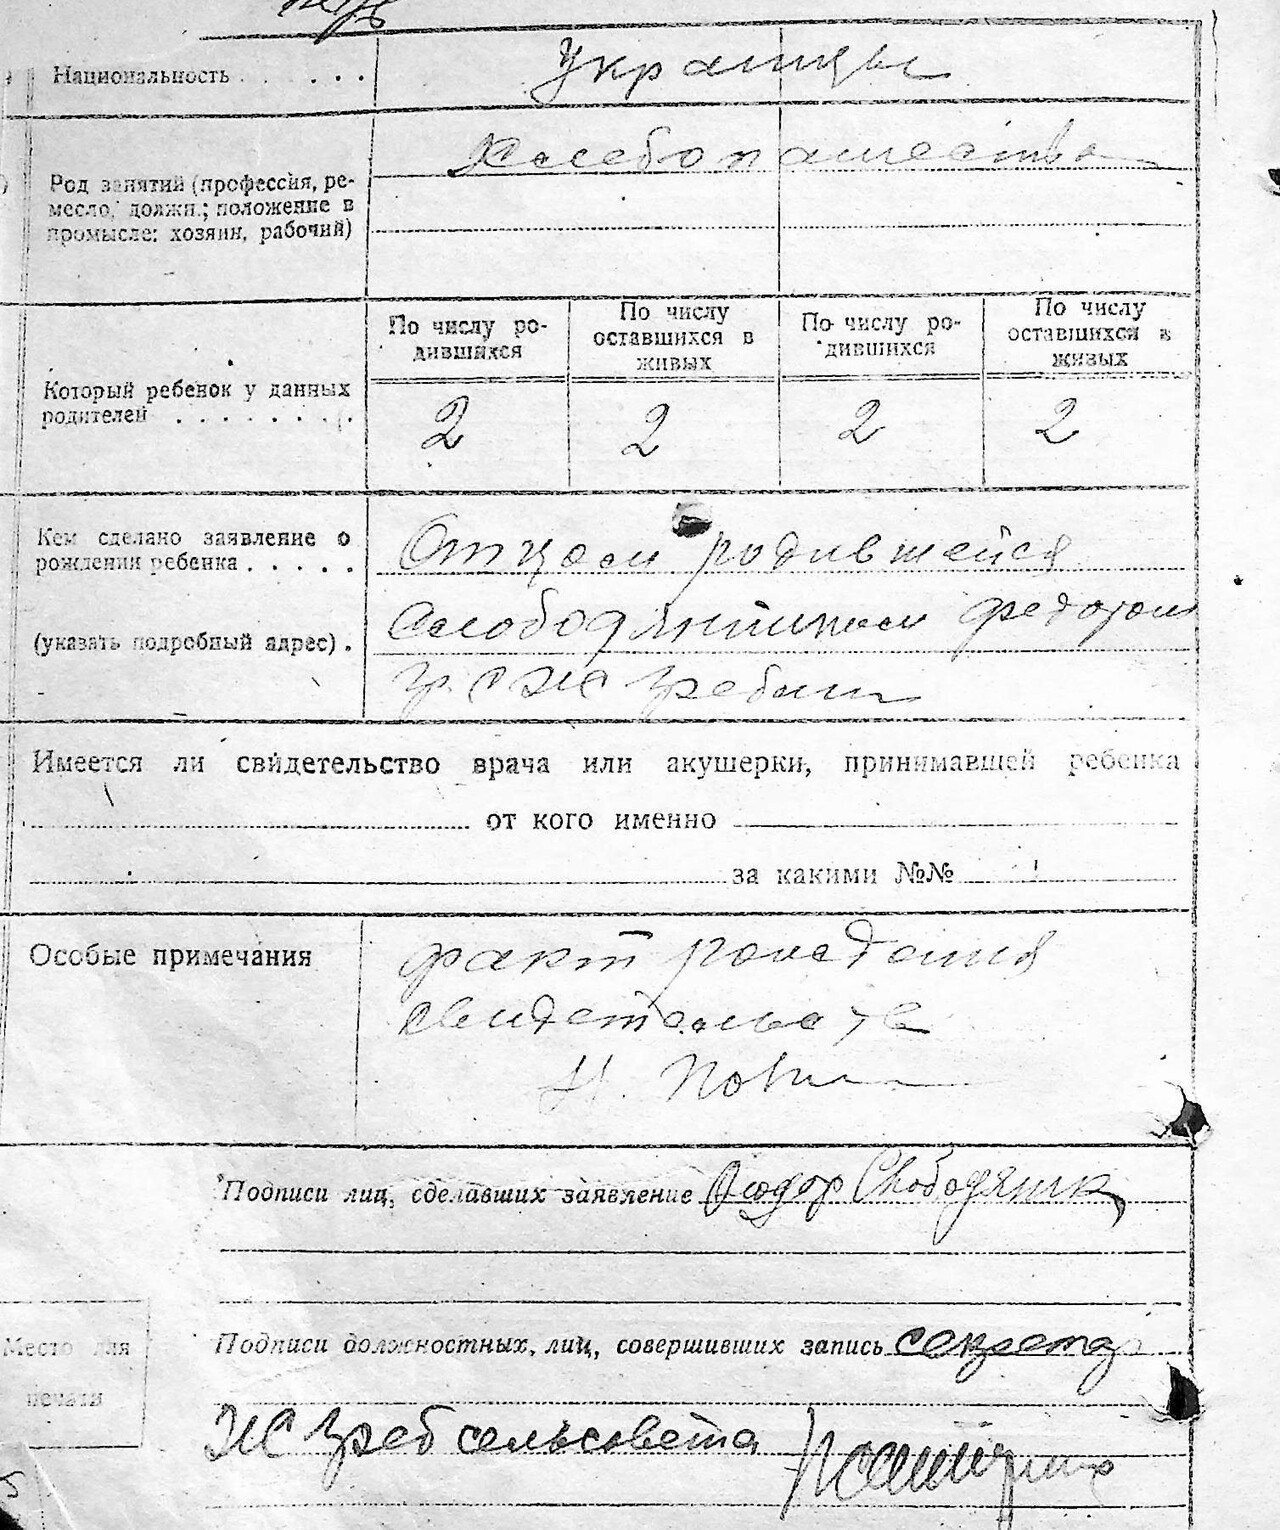 Национальность . . . . . . Украинцы
Род занятий (профессия, ре-
месло, должн.; положение в
промысле: хозяин, рабочий)
Хлебопашество
По числу ро-
дившихся
По числу
оставшихся в
живых
По числу ро-
дившихся
По числу
оставшихся в
живых
Который ребенок у данных
родителей . . . . . . . .
2 2 2 2
Кем сделано заявление о
рождении ребенка . . . . .
(указать подробный адрес) .
Отцом родившейся
Слободянником Федором
Имеется ли свидетельство врача или акушерки, принимавшей ребенка
от кого именно
за какими №№
Особые примечания
факт рождения
Подписи лиц, сделавших заявление Фиодор Свободяник
Подписи должностных, лиц, совершивших запись секретар
Место для
печати
сельсовета